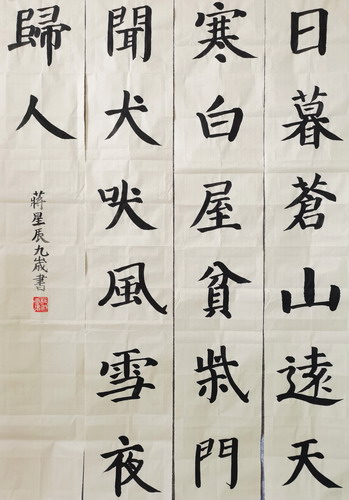 日暮蒼山遠天
寒白屋貧柴門
聞犬吠風雪夜
歸人
蔣星辰九歲書